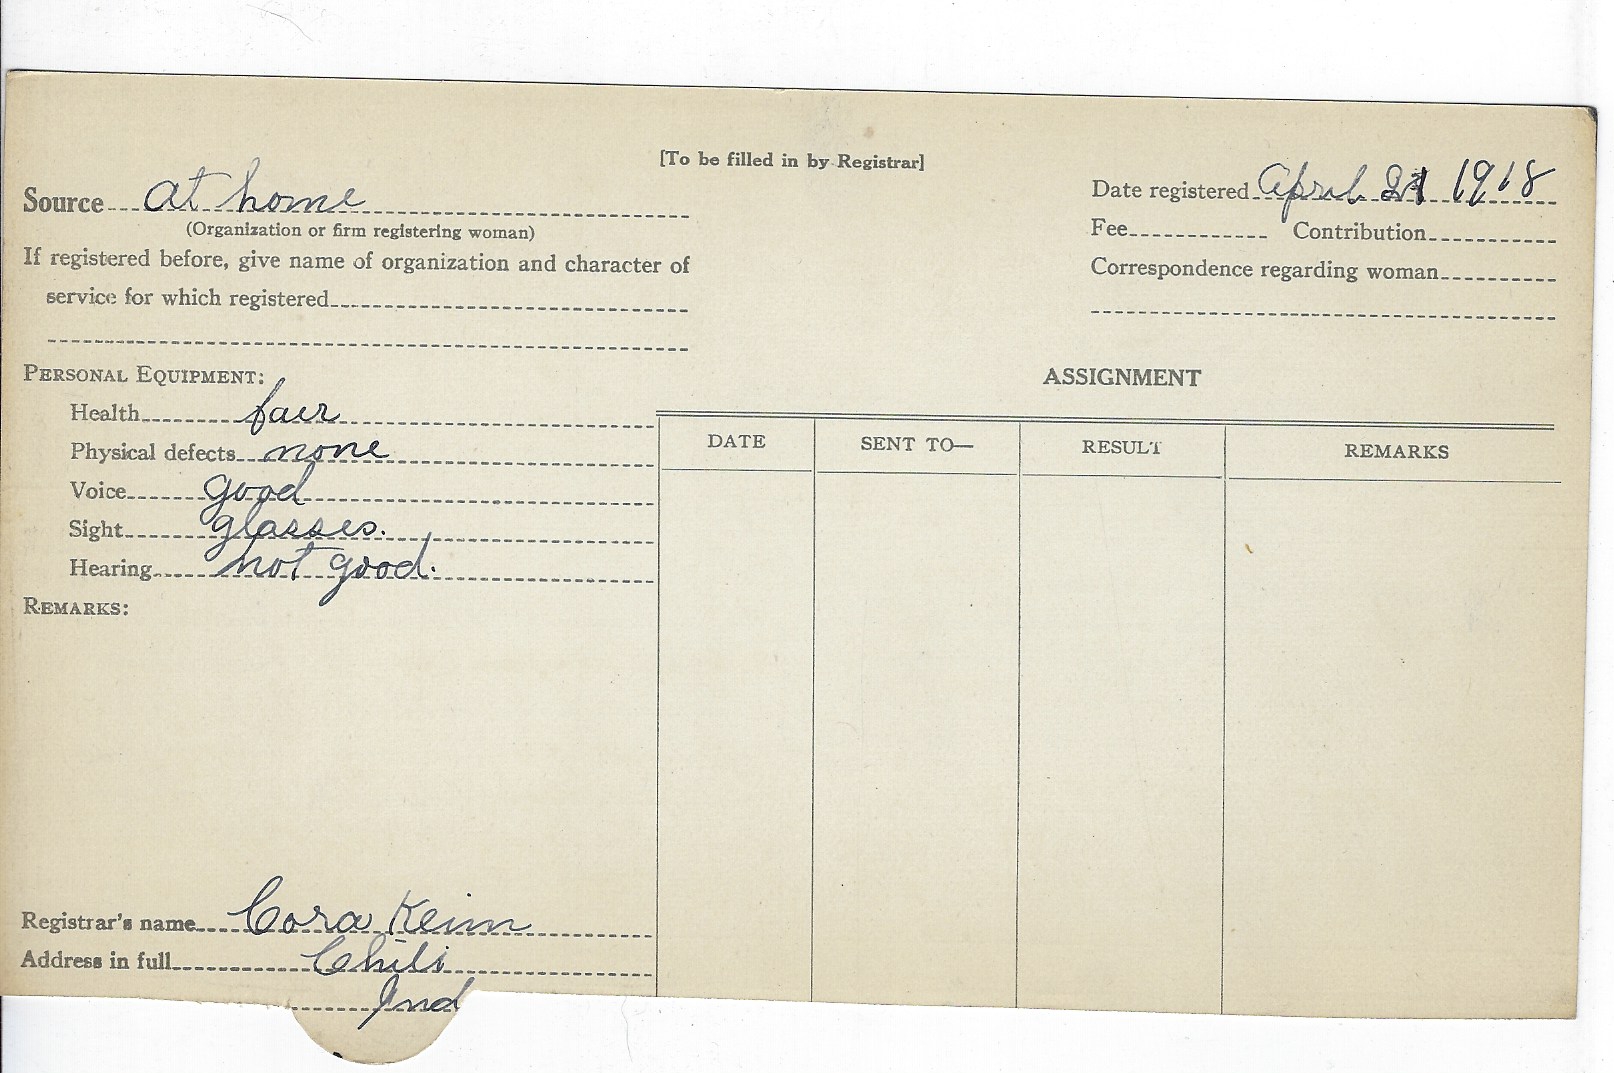 [To be filled in by Registrar]
Source at home
(Organization or firm registering woman)
If registered before, give name of organization and character of
service for which registered
Date registered April 21 1918
Fee Contribution
Correspondence regarding woman
PERSONAL EQUIPMENT:
Health fair
Physical defects none
Voice good
Sight glasses.
Hearing not good.
REMARKS:
Registrar's name Cora Keim
Address in full Chili
Ind
ASSIGNMENT
DATE SENT TO— RESULT REMARKS